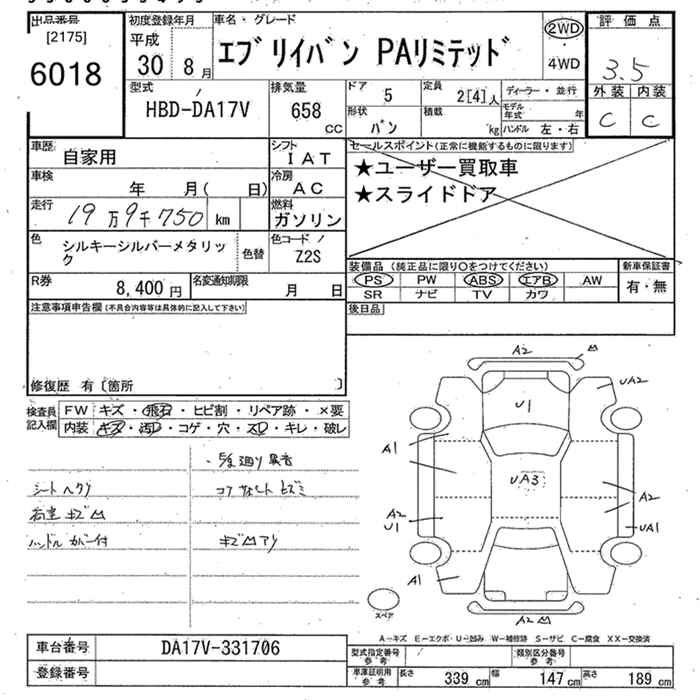 出品番号 初度登録年月 車名・グレード 評価点
[2175] 平成 エブリイバン PAリミテッド 2WD
6018 30 8月 4WD 3.5
型式 排気量 ドア 定員 ディーラー・並行 外装 内装
HBD-DA17V 658 cc 5 2[4]人 モデル年式 年 C C
形状 バン 積載 kg ハンドル 左・右
車歴 自家用 シフト IAT セールスポイント(正常に機能するものに限ります)
★ユーザー買取車
★スライドドア
車検 年 月( 日) 冷房 AC
走行 19万9千750 km 燃料 ガソリン
色 シルキーシルバーメタリック 色替 色コード Z2S
装備品 (純正品に限り○をつけてください) 新車保証書
PS PW ABS エアB AW 有・無
SR ナビ TV カワ
R券 8,400円 名変通知期限 月 日
後日品
注意事項申告欄(不具合内容等は具体的に記入して下さい)
修復歴 有〔箇所 〕
検査員記入欄 FW キズ・飛石・ヒビ割・リペア跡・×要
内装 キズ・汚レ・コゲ・穴・スレ・キレ・破レ
シートヘタリ
ハンドルカバー付
A2
U1
UA2
A1
UA3
A2
A2
U1
UA1
A1
A2
スペア
A-キズ E-エクボ・U-凹み W-補修跡 S-サビ C-腐食 XX-交換済
車台番号 DA17V-331706 型式指定番号 参考 類別区分番号 参考
登録番号 車庫証明用 参考 長さ 339cm 幅 147cm 高さ 189cm